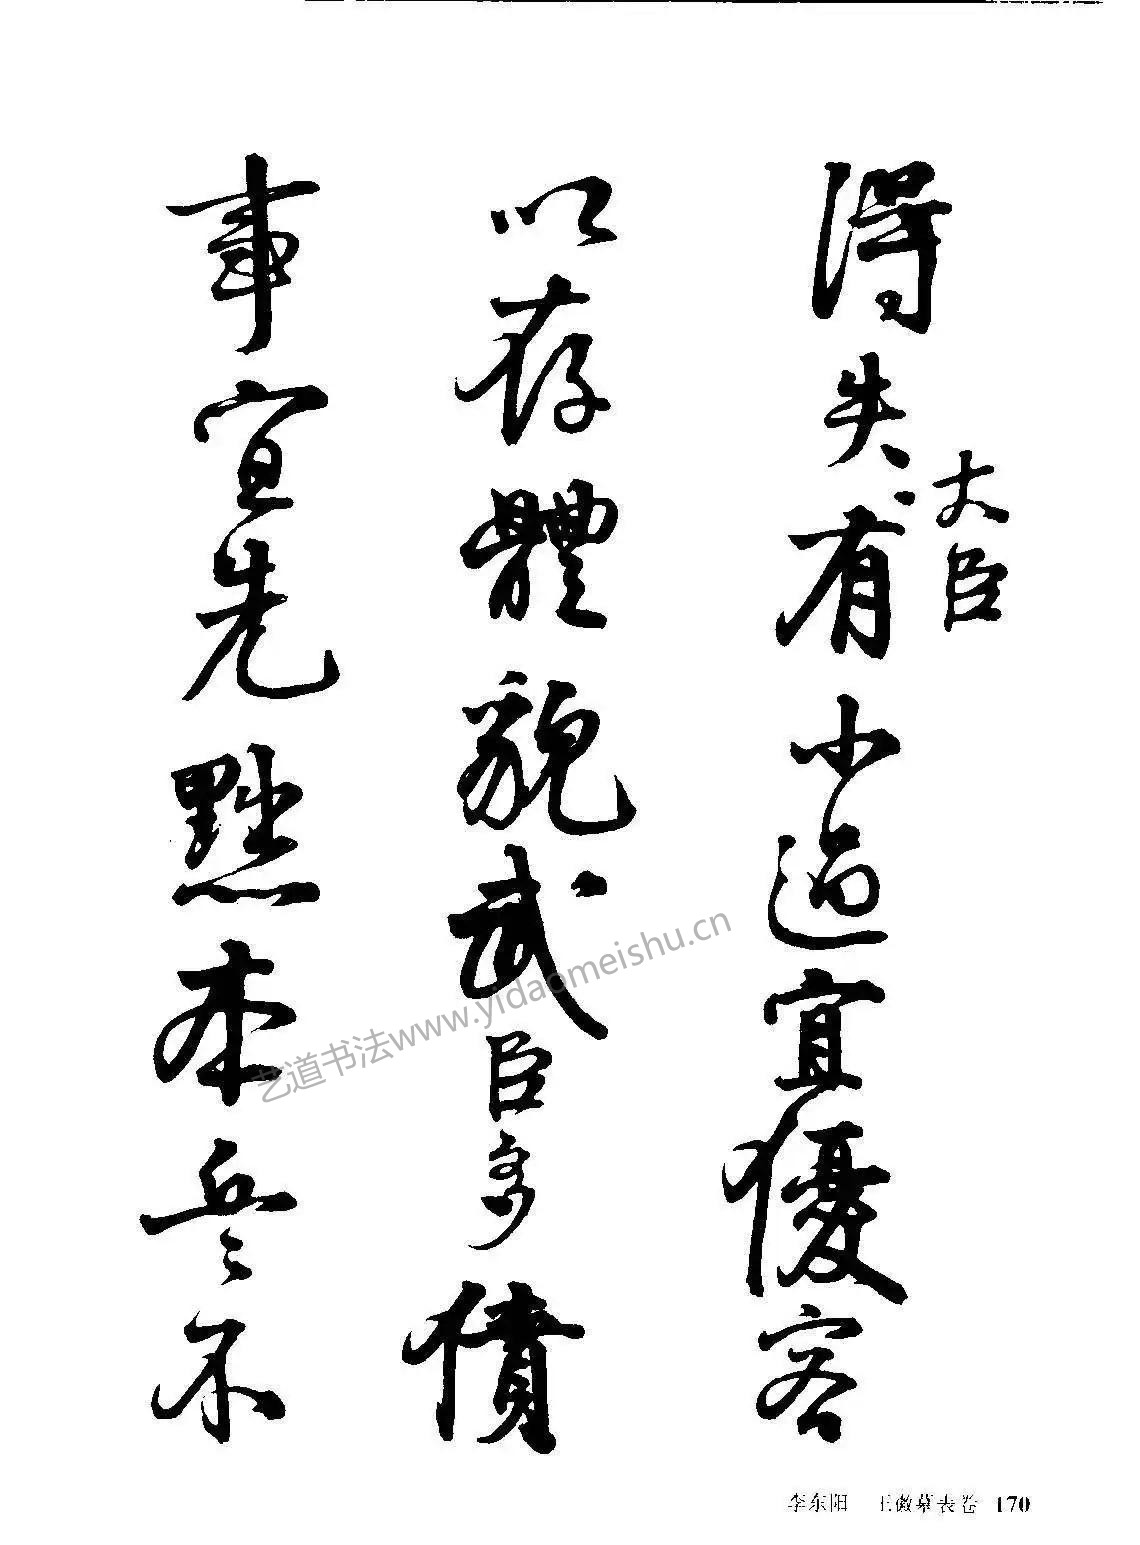 得失有小過宜優容
大臣
以存體貌武臣多僨
事宜先黜本兵不
艺道书法www.yidaomeishu.cn
李东阳 王徽墓表卷 170